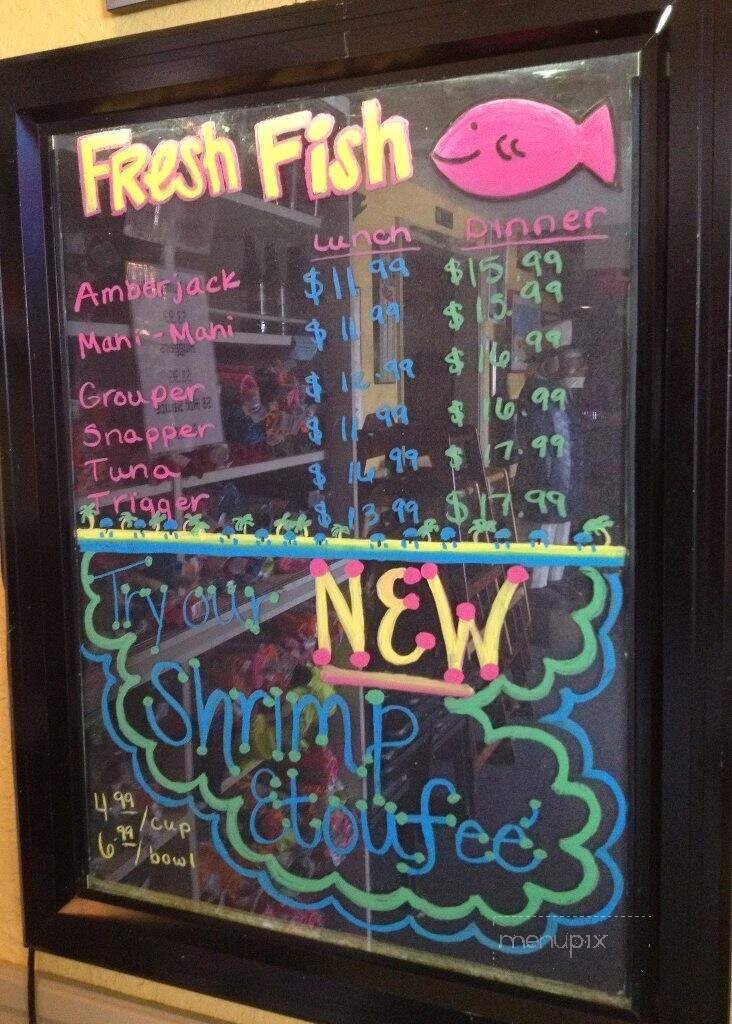 Fresh Fish
Lunch Dinner
Amberjack $11.99 $15.99
Mahi-Mahi $11.99 $15.99
Grouper $12.99 $16.99
Snapper $11.99 $16.99
Tuna $16.99 $17.99
Trigger $13.99 $17.99
Try our NEW
Shrimp
Etoufeé
4.99/cup
6.99/bowl
menupix